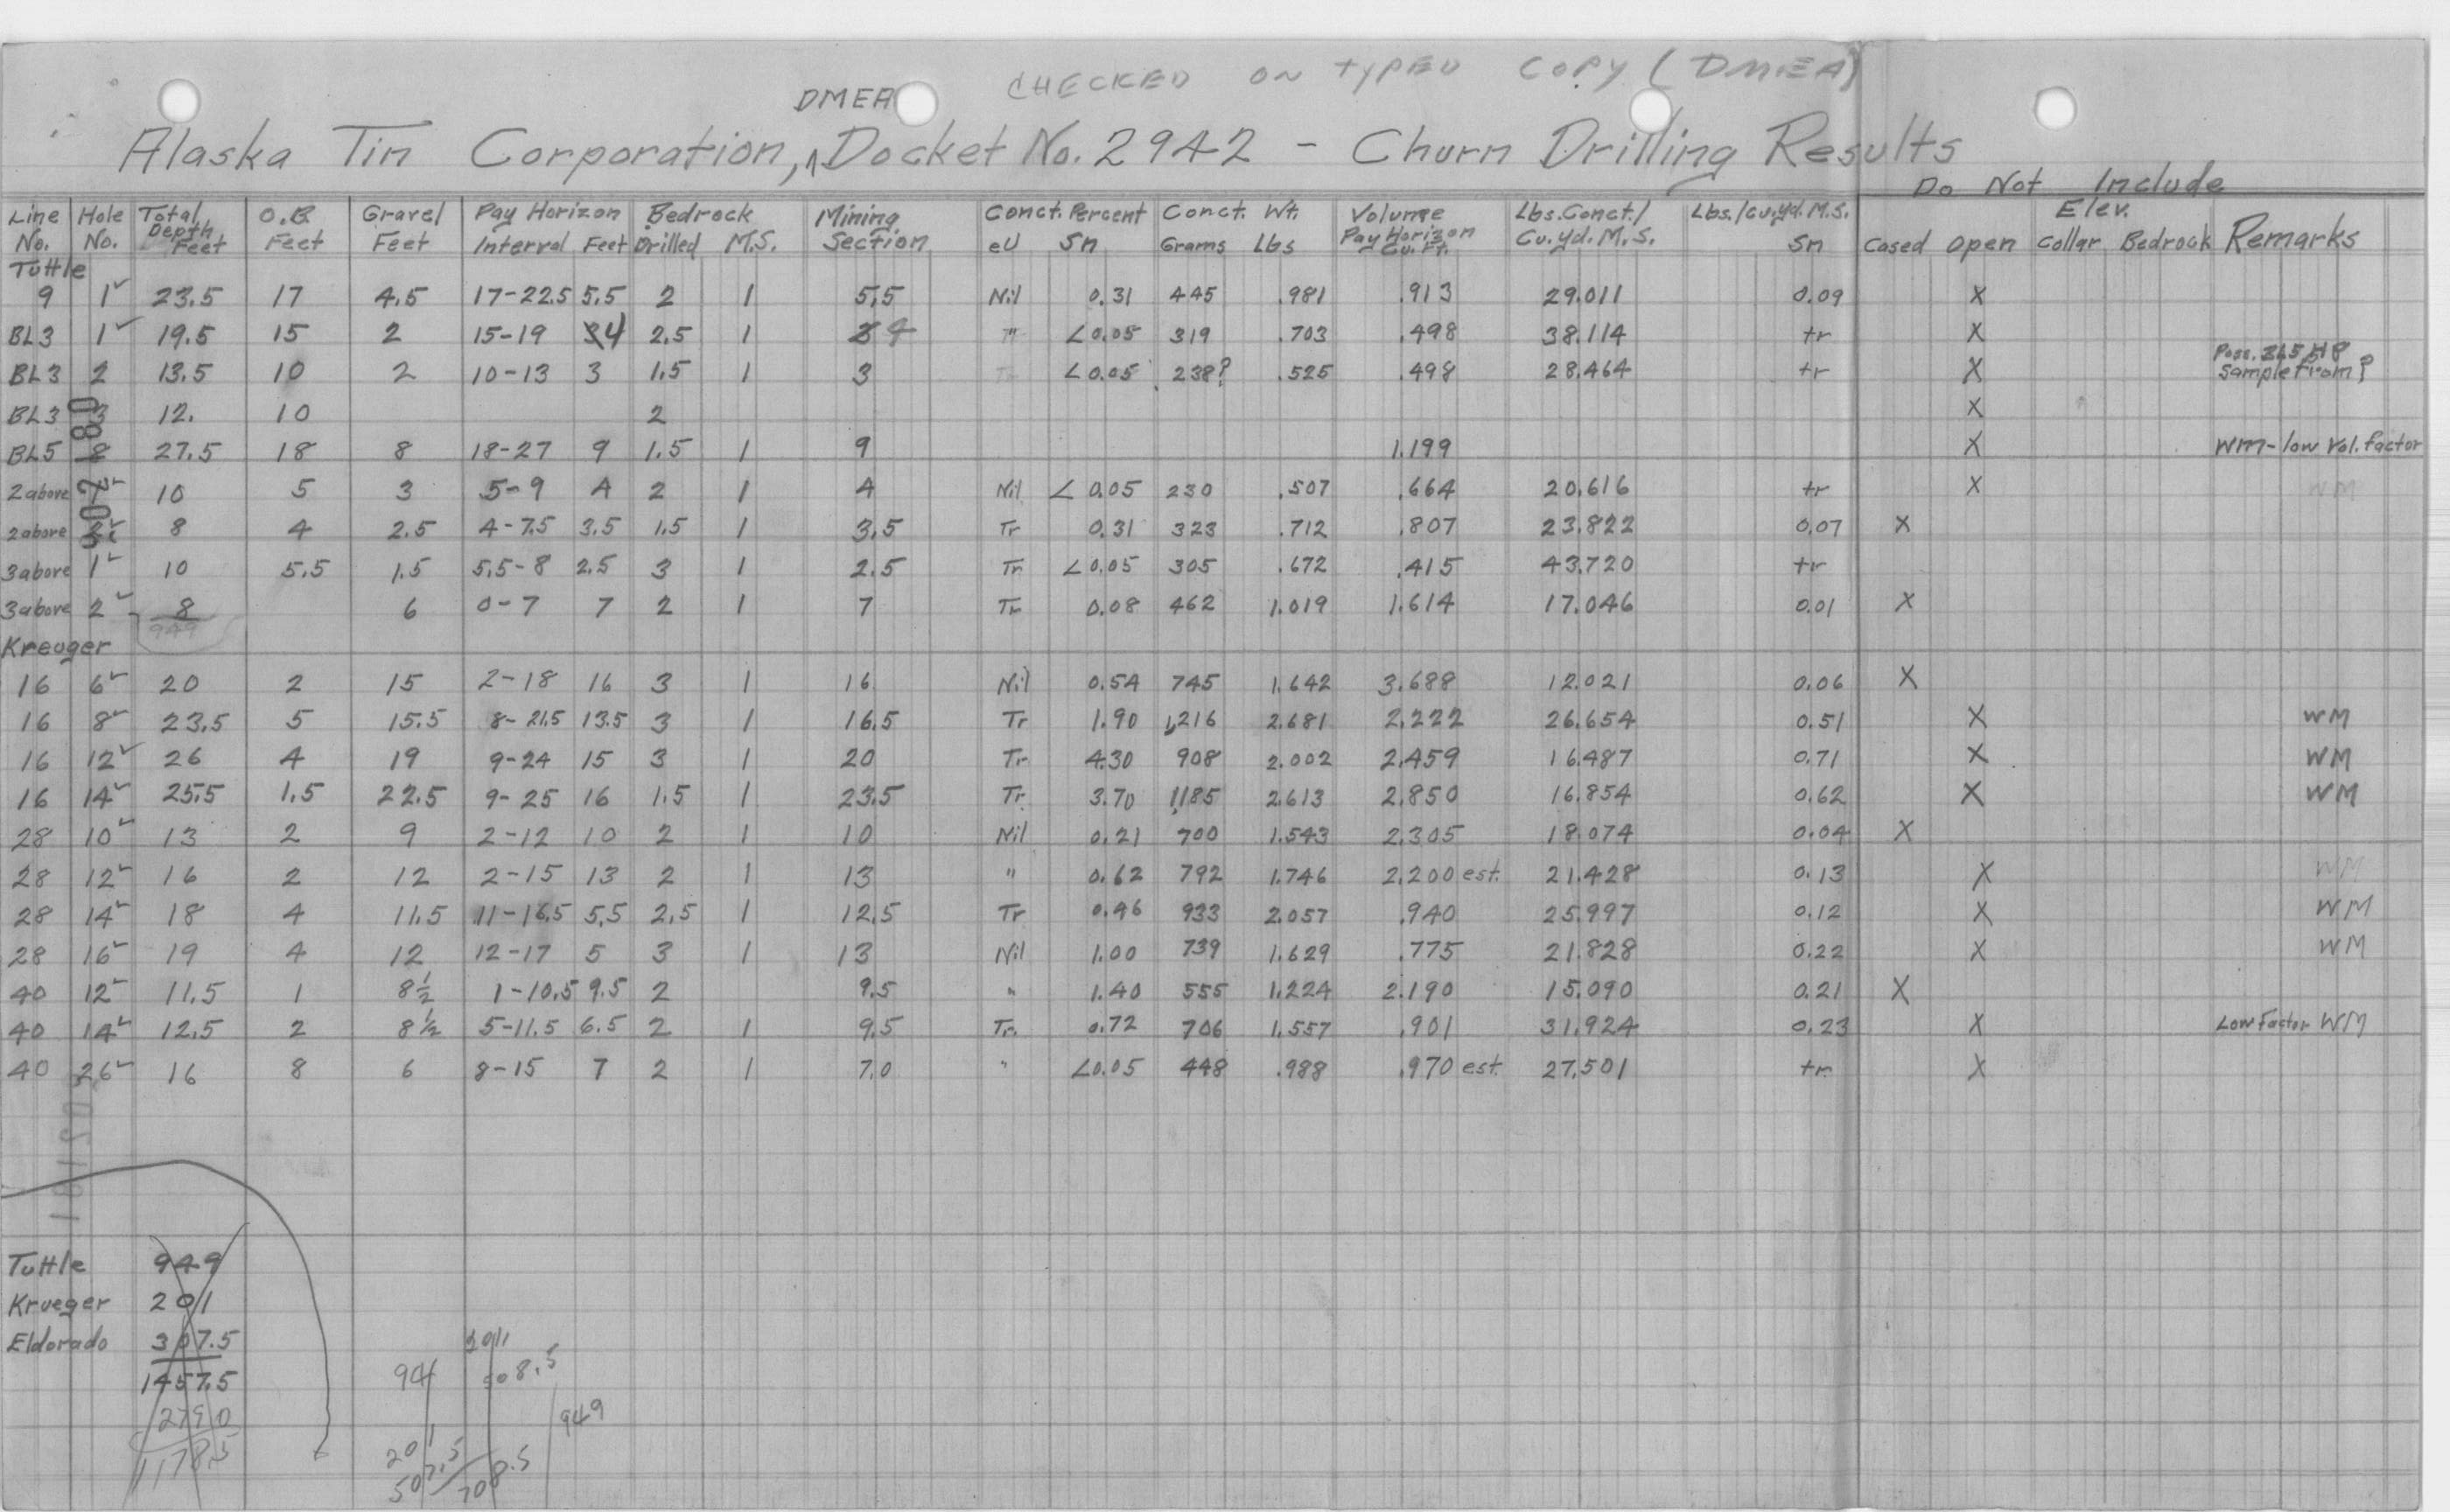 CHECKED ON TYPED COPY (DMEA)
DMEA
Alaska Tin Corporation, ^ Docket No. 2942 - Churn Drilling Results
Do Not Include
Line No. Hole No. Total Depth Feet O.B. Feet Gravel Feet Pay Horizon Interval Feet Bedrock Drilled M.S. Mining Section Conct. Percent eU Sn Conct. Wt. Grams Lbs Volume Pay Horizon Cu. Ft. Lbs. Conct./ Cu. Yd. M.S. Lbs./cu.yd. M.S. Sn Cased Open Elev. Collar Bedrock Remarks
Tuttle
9 1✓ 23.5 17 4.5 17-22.5 5.5 2 1 5.5 Nil 0.31 445 .981 .913 29.011 0.09 X
BL3 1✓ 19.5 15 2 15-19 4 2.5 1 4 " <0.05 319 .703 .498 38.114 tr X
BL3 2 13.5 10 2 10-13 3 1.5 1 3 Tr <0.05 238? .525 .498 28.464 tr X Poss. BL5, H8 sample from?
BL3 3 12. 10 2 X
BL5 8 27.5 18 8 18-27 9 1.5 1 9 1.199 X WM-low vol. factor
2above 1✓ 10 5 3 5-9 4 2 1 4 Nil <0.05 230 .507 .664 20.616 tr X WM
2above 2✓ 8 4 2.5 4-7.5 3.5 1.5 1 3.5 Tr 0.31 323 .712 .807 23.822 0.07 X
3above 1✓ 10 5.5 1.5 5.5-8 2.5 3 1 2.5 Tr <0.05 305 .672 .415 43.720 tr
3above 2✓ 8 6 0-7 7 2 1 7 Tr 0.08 462 1.019 1.614 17.046 0.01 X
949
Kreuger
16 6✓ 20 2 15 2-18 16 3 1 16 Nil 0.54 745 1.642 3.688 12.021 0.06 X
16 8✓ 23.5 5 15.5 8-21.5 13.5 3 1 16.5 Tr 1.90 1,216 2.681 2.222 26.654 0.51 X WM
16 12✓ 26 4 19 9-24 15 3 1 20 Tr 4.30 908 2.002 2.459 16.487 0.71 X WM
16 14✓ 25.5 1.5 22.5 9-25 16 1.5 1 23.5 Tr 3.70 1,185 2.613 2.850 16.854 0.62 X WM
28 10✓ 13 2 9 2-12 10 2 1 10 Nil 0.21 700 1.543 2.305 18.074 0.04 X
28 12✓ 16 2 12 2-15 13 2 1 13 " 0.62 792 1.746 2.200 est. 21.428 0.13 X WM
28 14✓ 18 4 11.5 11-16.5 5.5 2.5 1 12.5 Tr 0.46 933 2.057 .940 25.997 0.12 X WM
28 16✓ 19 4 12 12-17 5 3 1 13 Nil 1.00 739 1.629 .775 21.828 0.22 X WM
40 12✓ 11.5 1 8½ 1-10.5 9.5 2 9.5 " 1.40 555 1.224 2.190 15.090 0.21 X
40 14✓ 12.5 2 8½ 5-11.5 6.5 2 1 9.5 Tr. 0.72 706 1.557 .901 31.924 0.23 X Low factor WM
40 26✓ 16 8 6 8-15 7 2 1 7.0 " <0.05 448 .988 .970 est. 27.501 tr X
Tuttle 949
Krueger 201
Eldorado 307.5
1457.5
279.0
1178.5
94
508.5
949
201
507.5
708.5